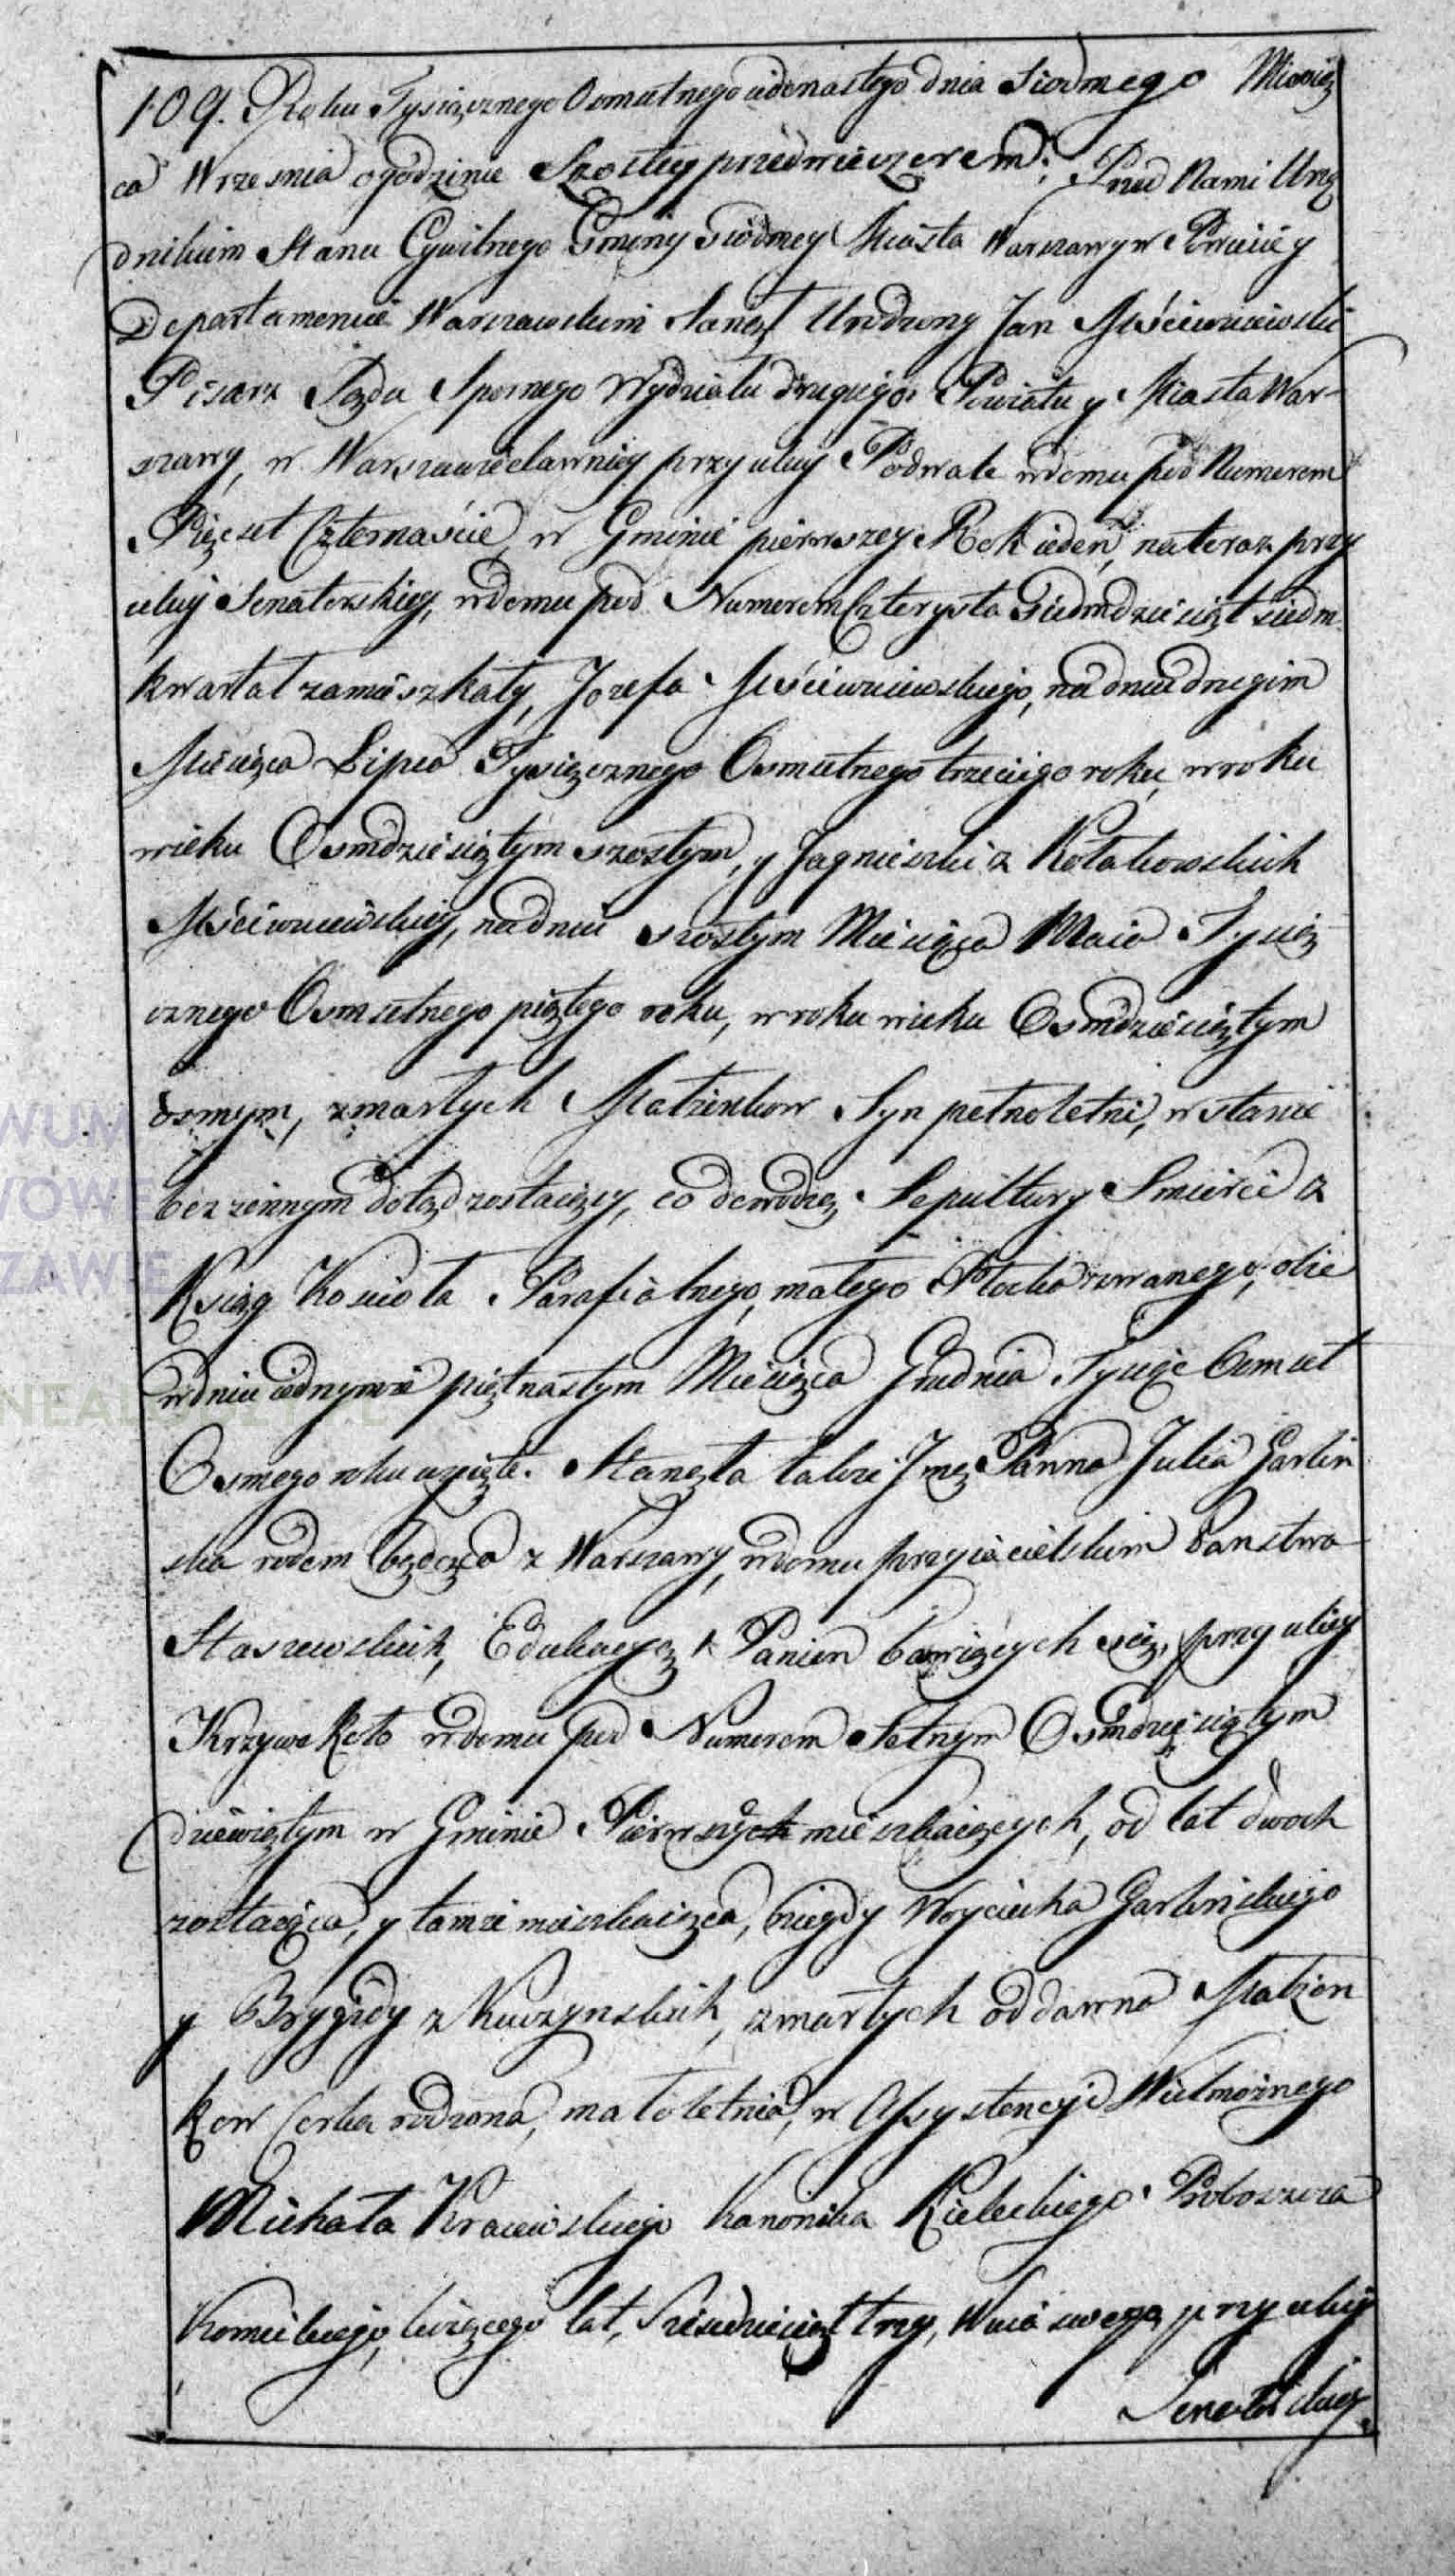 109. Roku Tysiącznego Osmsetnego iedenastego dnia Siodmego Miesią
ca Wrzesnia o godzinie Szostey przedwieczorem; Przed Nami Urzę
dnikiem Stanu Cywilnego Gminy Siodmey Miasta Warszawy w Powiecie y
Departamencie Warszawskim Stanął Urodzony Jan Mściwuiewski
Pisarz Sądu Spornego Wydziału drugiego Powiatu y Miasta War-
szawy, w Warszawie dawniey przy ulicy Podwale w domu pod Numerem
Pięcset Czternaście w Gminie pierwszey Rok ieden, na teraz przy
ulicy Senatorskiey, w domu pod Numerem Czterysta Siedmdziesiąt siedm
kwartał zamieszkały, Jozefa Mściwuiewskiego, na dniu drugim
Miesiąca Lipca Tysiącznego Osmsetnego trzeciego roku, w roku
wieku Osmdziesiątym szostym, y Jagnieszki z Kołakowskich
Mściwuiewskiey, na dniu szostym Miesiąca Maia Tysią
cznego Osmsetnego piątego roku, w roku wieku Osmdziesiątym
osmym, zmarłych Małżonkow Syn pełnoletni, w stanie
bezżennym dotąd zostaiący, co dowodzą Sepultury Smierci z
Ksiąg Koscioła Parafialnego, małego Płocka zwanego, obie
w dniu iednymże piętnastym Miesiąca Grudnia Tysiąc Osmset
Osmego roku wyięte. Stanęła także Jmć Panna Julia Garlin
ska rodem będąca z Warszawy, w domu przyiacielskim Państwa
Staszewskich, Edukacyą Panien bawiących się, przy ulicy
Krzywe Koło w domu pod Numerem Setnym Osmdziesiątym
dziewiątym w Gminie Pierwszych mieszkaiących, od lat dwoch
zostaiąca, y tamże mieszkaiąca, niegdy Woyciecha Garlinskiego
y Brygidy z Kuczynskich, zmarłych od dawna Małżon
kow Corka rodzona, małoletnia, w Assystencyi Wielmożnego
Michała Kraiewskiego Kanonika Kieleckiego Proboszcza
liczącego lat, Sześdziesiąt trzy, Wuia swego, przy ulicy
Senatorskiey